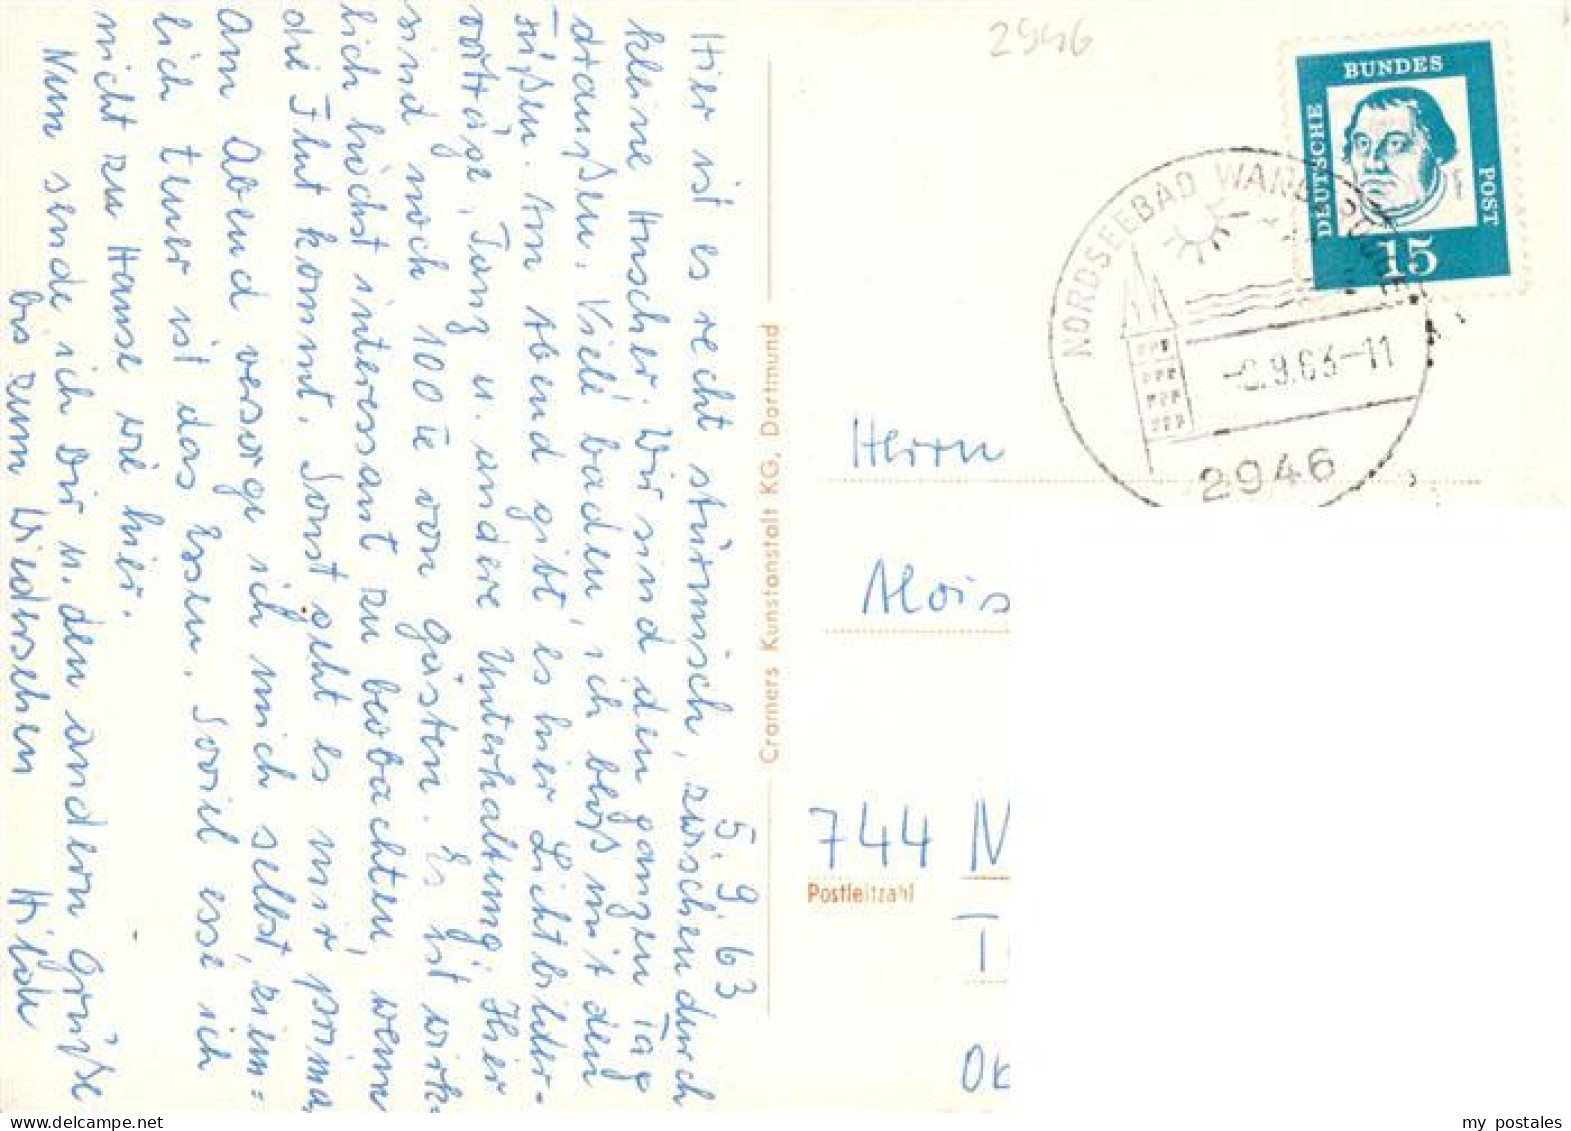 5.9.63
Hier ist es recht stürmisch, zwischendurch
kleine Huscher. Wir sind den ganzen Tag
draußen. Viele baden, ich bloß mit den
Füßen. Am Abend gibt es hier Lichtbilder-
vorträge, Tanz u. andere Unterhaltung. Hier
sind noch 100te von Gästen. Es ist wirk-
lich höchst interessant zu beobachten, wenn
die Flut kommt. Sonst geht es mir prima,
am Abend versorge ich mich selbst, ziem=
lich teuer ist das Essen. Soviel esse ich
nicht zu Hause wie hier.
Nun sende ich Dir u. den andern Grüße
bis zum Wiedersehen Hilde
Cramers Kunstanstalt KG, Dortmund
2946
DEUTSCHE BUNDES POST
15
NORDSEEBAD
9.63-11
2946
Herrn
Alois
744 N
Postleitzahl
my postales